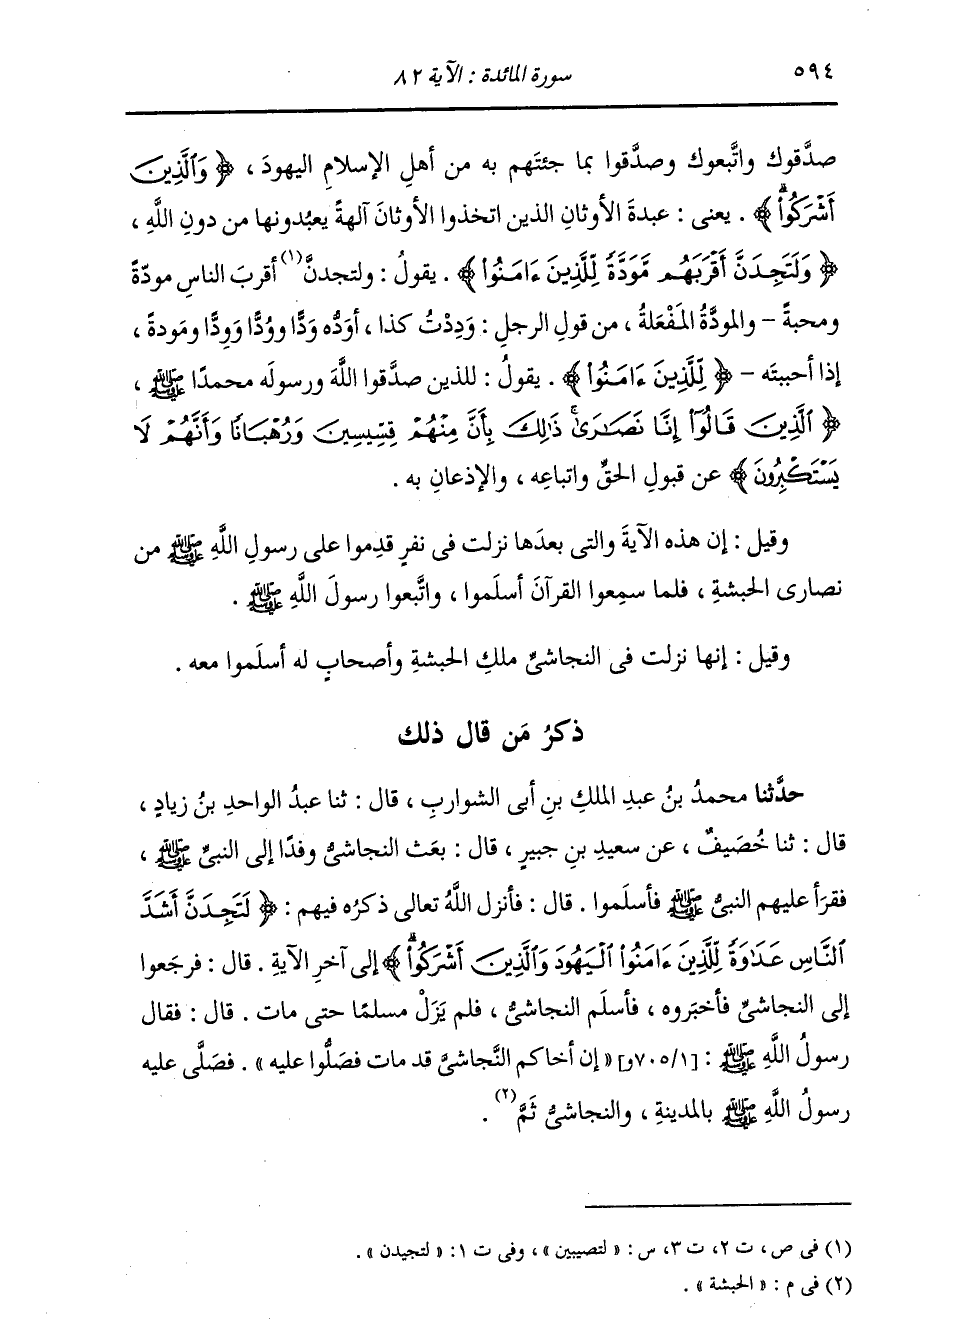 ٥٩٤ سورة المائدة : الآية ٨٢
صدَّقوك واتَّبعوك وصدَّقوا بما جئتَهم به من أهلِ الإسلامِ اليهودَ ، ﴿ وَٱلَّذِينَ
أَشْرَكُواْۖ ﴾ . يعنى : عبدةَ الأوثانِ الذين اتخذوا الأوثانَ آلهةً يعبُدونها من دونِ اللَّهِ ،
﴿ وَلَتَجِدَنَّ أَقْرَبَهُم مَّوَدَّةً لِّلَّذِينَ ءَامَنُواْ ﴾ . يقولُ : ولتجدنَّ(١) أقربَ الناسِ مودّةً
ومحبةً – والمودَّةُ المَفْعَلةُ ، من قولِ الرجلِ : وَدِدْتُ كذا ، أوَدُّه وَدًّا ووُدًّا ووِدًّا ومَودةً ،
إذا أحببتَه – ﴿ لِّلَّذِينَ ءَامَنُواْ ﴾ . يقولُ : للذين صدَّقوا اللَّهَ ورسولَه محمدًا ﷺ ،
﴿ ٱلَّذِينَ قَالُوٓاْ إِنَّا نَصَٰرَىٰۚ ذَٰلِكَ بِأَنَّ مِنْهُمْ قِسِّيسِينَ وَرُهْبَانًا وَأَنَّهُمْ لَا
يَسْتَكْبِرُونَ ﴾ عن قبولِ الحقِّ واتباعِه ، والإذعانِ به .
وقيل : إن هذه الآيةَ والتى بعدَها نزلت فى نفرٍ قدِموا على رسولِ اللَّهِ ﷺ من
نصارى الحبشةِ ، فلما سمِعوا القرآنَ أسلَموا ، واتَّبعوا رسولَ اللَّهِ ﷺ .
وقيل : إنها نزلت فى النجاشىِّ ملكِ الحبشةِ وأصحابٍ له أسلَموا معه .
ذكرُ مَن قال ذلك
حدَّثنا محمدُ بنُ عبدِ الملكِ بنِ أبى الشواربِ ، قال : ثنا عبدُ الواحدِ بنُ زيادٍ ،
قال : ثنا خُصَيفٌ ، عن سعيدِ بنِ جبيرٍ ، قال : بعَث النجاشىُّ وفدًا إلى النبىِّ ﷺ ،
فقرَأ عليهم النبىُّ ﷺ فأسلَموا . قال : فأنزل اللَّهُ تعالى ذكرُه فيهم : ﴿ لَتَجِدَنَّ أَشَدَّ
ٱلنَّاسِ عَدَٰوَةً لِّلَّذِينَ ءَامَنُواْ ٱلْيَهُودَ وَٱلَّذِينَ أَشْرَكُواْۖ ﴾ إلى آخرِ الآيةِ . قال : فرجَعوا
إلى النجاشىِّ فأخبَروه ، فأسلَم النجاشىُّ ، فلم يَزَلْ مسلمًا حتى مات . قال : فقال
رسولُ اللَّهِ ﷺ : [٧٠٥/١و] « إن أخاكم النَّجاشىَّ قد مات فصَلُّوا عليه » . فصَلَّى عليه
رسولُ اللَّهِ ﷺ بالمدينةِ ، والنجاشىُّ ثَمَّ(٢) .
(١) فى ص ، ت ٢، ت ٣، س : « لتصيبين » ، وفى ت ١: « لتجيدن » .
(٢) فى م : « الحبشة » .